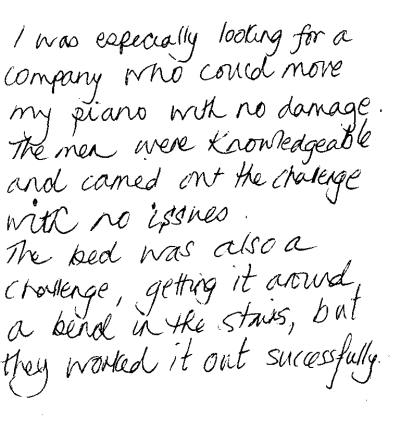 I was especially looking for a
company who could move
my piano with no damage.
The men were knowledgeable
and carried out the challenge
with no issues.
The bed was also a
challenge, getting it around
a bend in the stairs, but
they worked it out successfully.